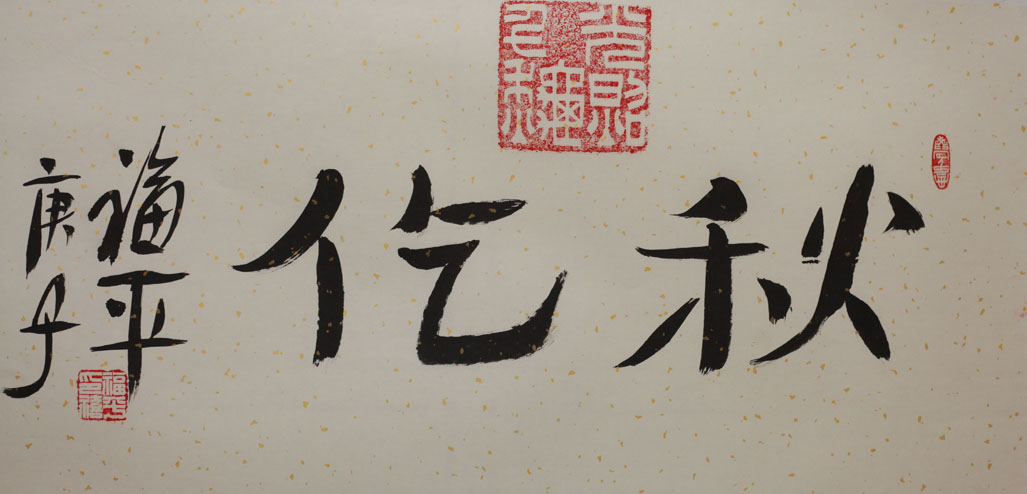 秋仡
福平
庚子